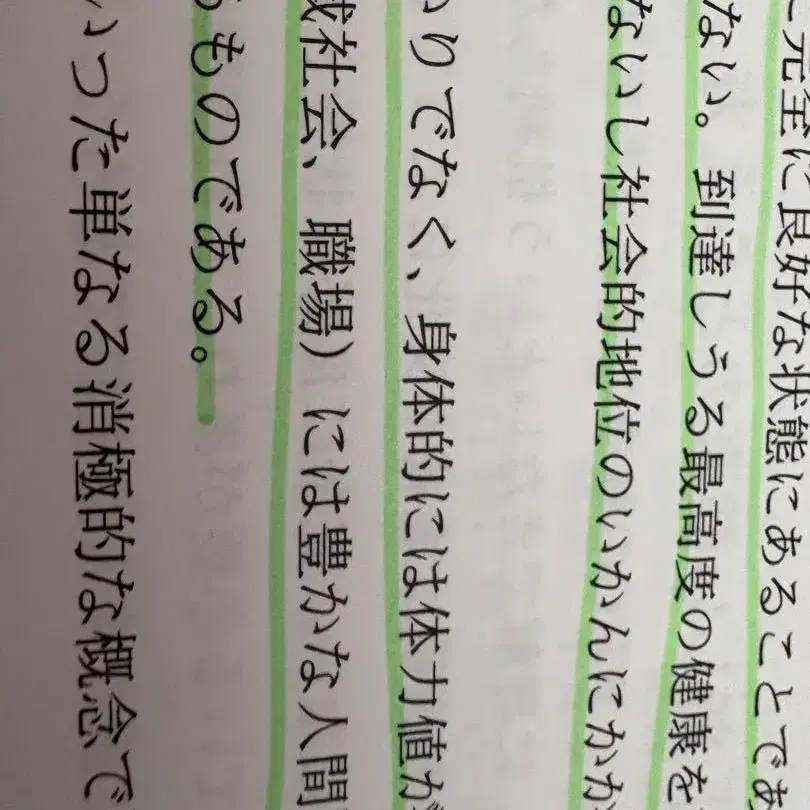 に完全に良好な状態にあることであ
ない。到達しうる最高度の健康を
ないし社会的地位のいかんにかか
かりでなく、身体的には体力値が
域社会、職場）には豊かな人間
るものである。
いった単なる消極的な概念で